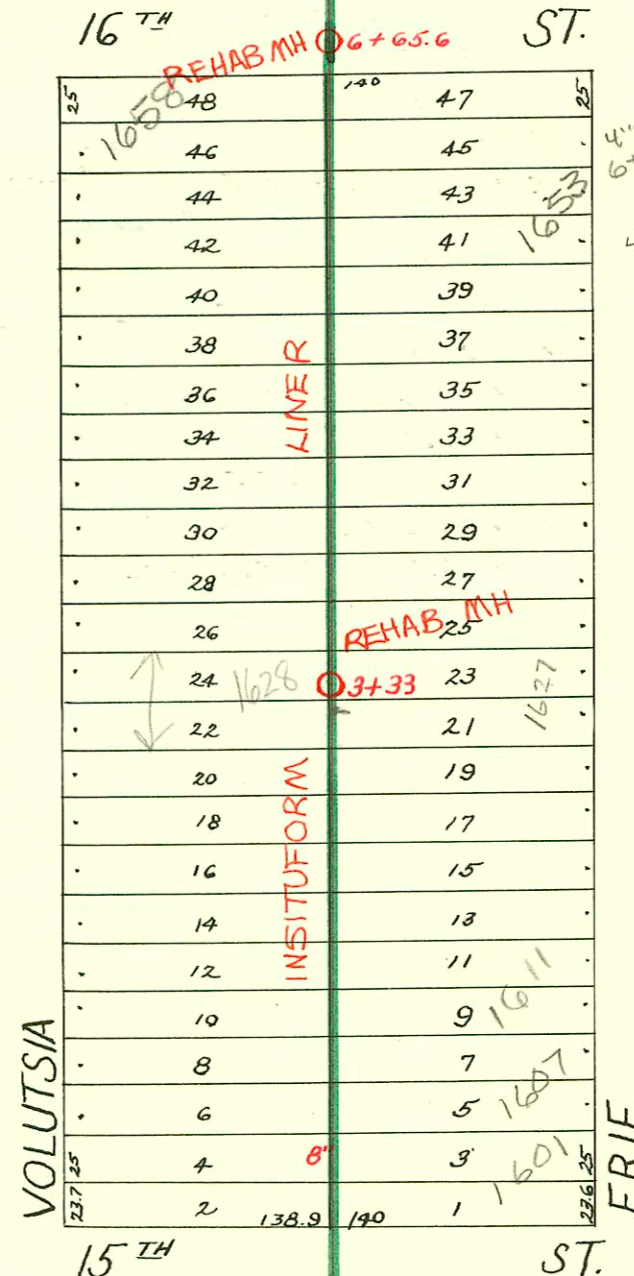 16TH ST.
REHAB MH 6+65.6
25 48 140 47 25
1658
46 45
4"
44 43
1653
42 41
40 39
38 37
LINER
36 35
34 33
32 31
30 29
28 27
26 25
REHAB MH
24 1628 3+33 23
1627
22 21
20 19
18 17
INSITUFORM
16 15
14 13
12 11
1611
10 9
8 7
1607
6 5
25 4 8" 3 25
1601
23.7 2 138.9 140 1 23.6
VOLUTSIA
ERIE
15TH ST.